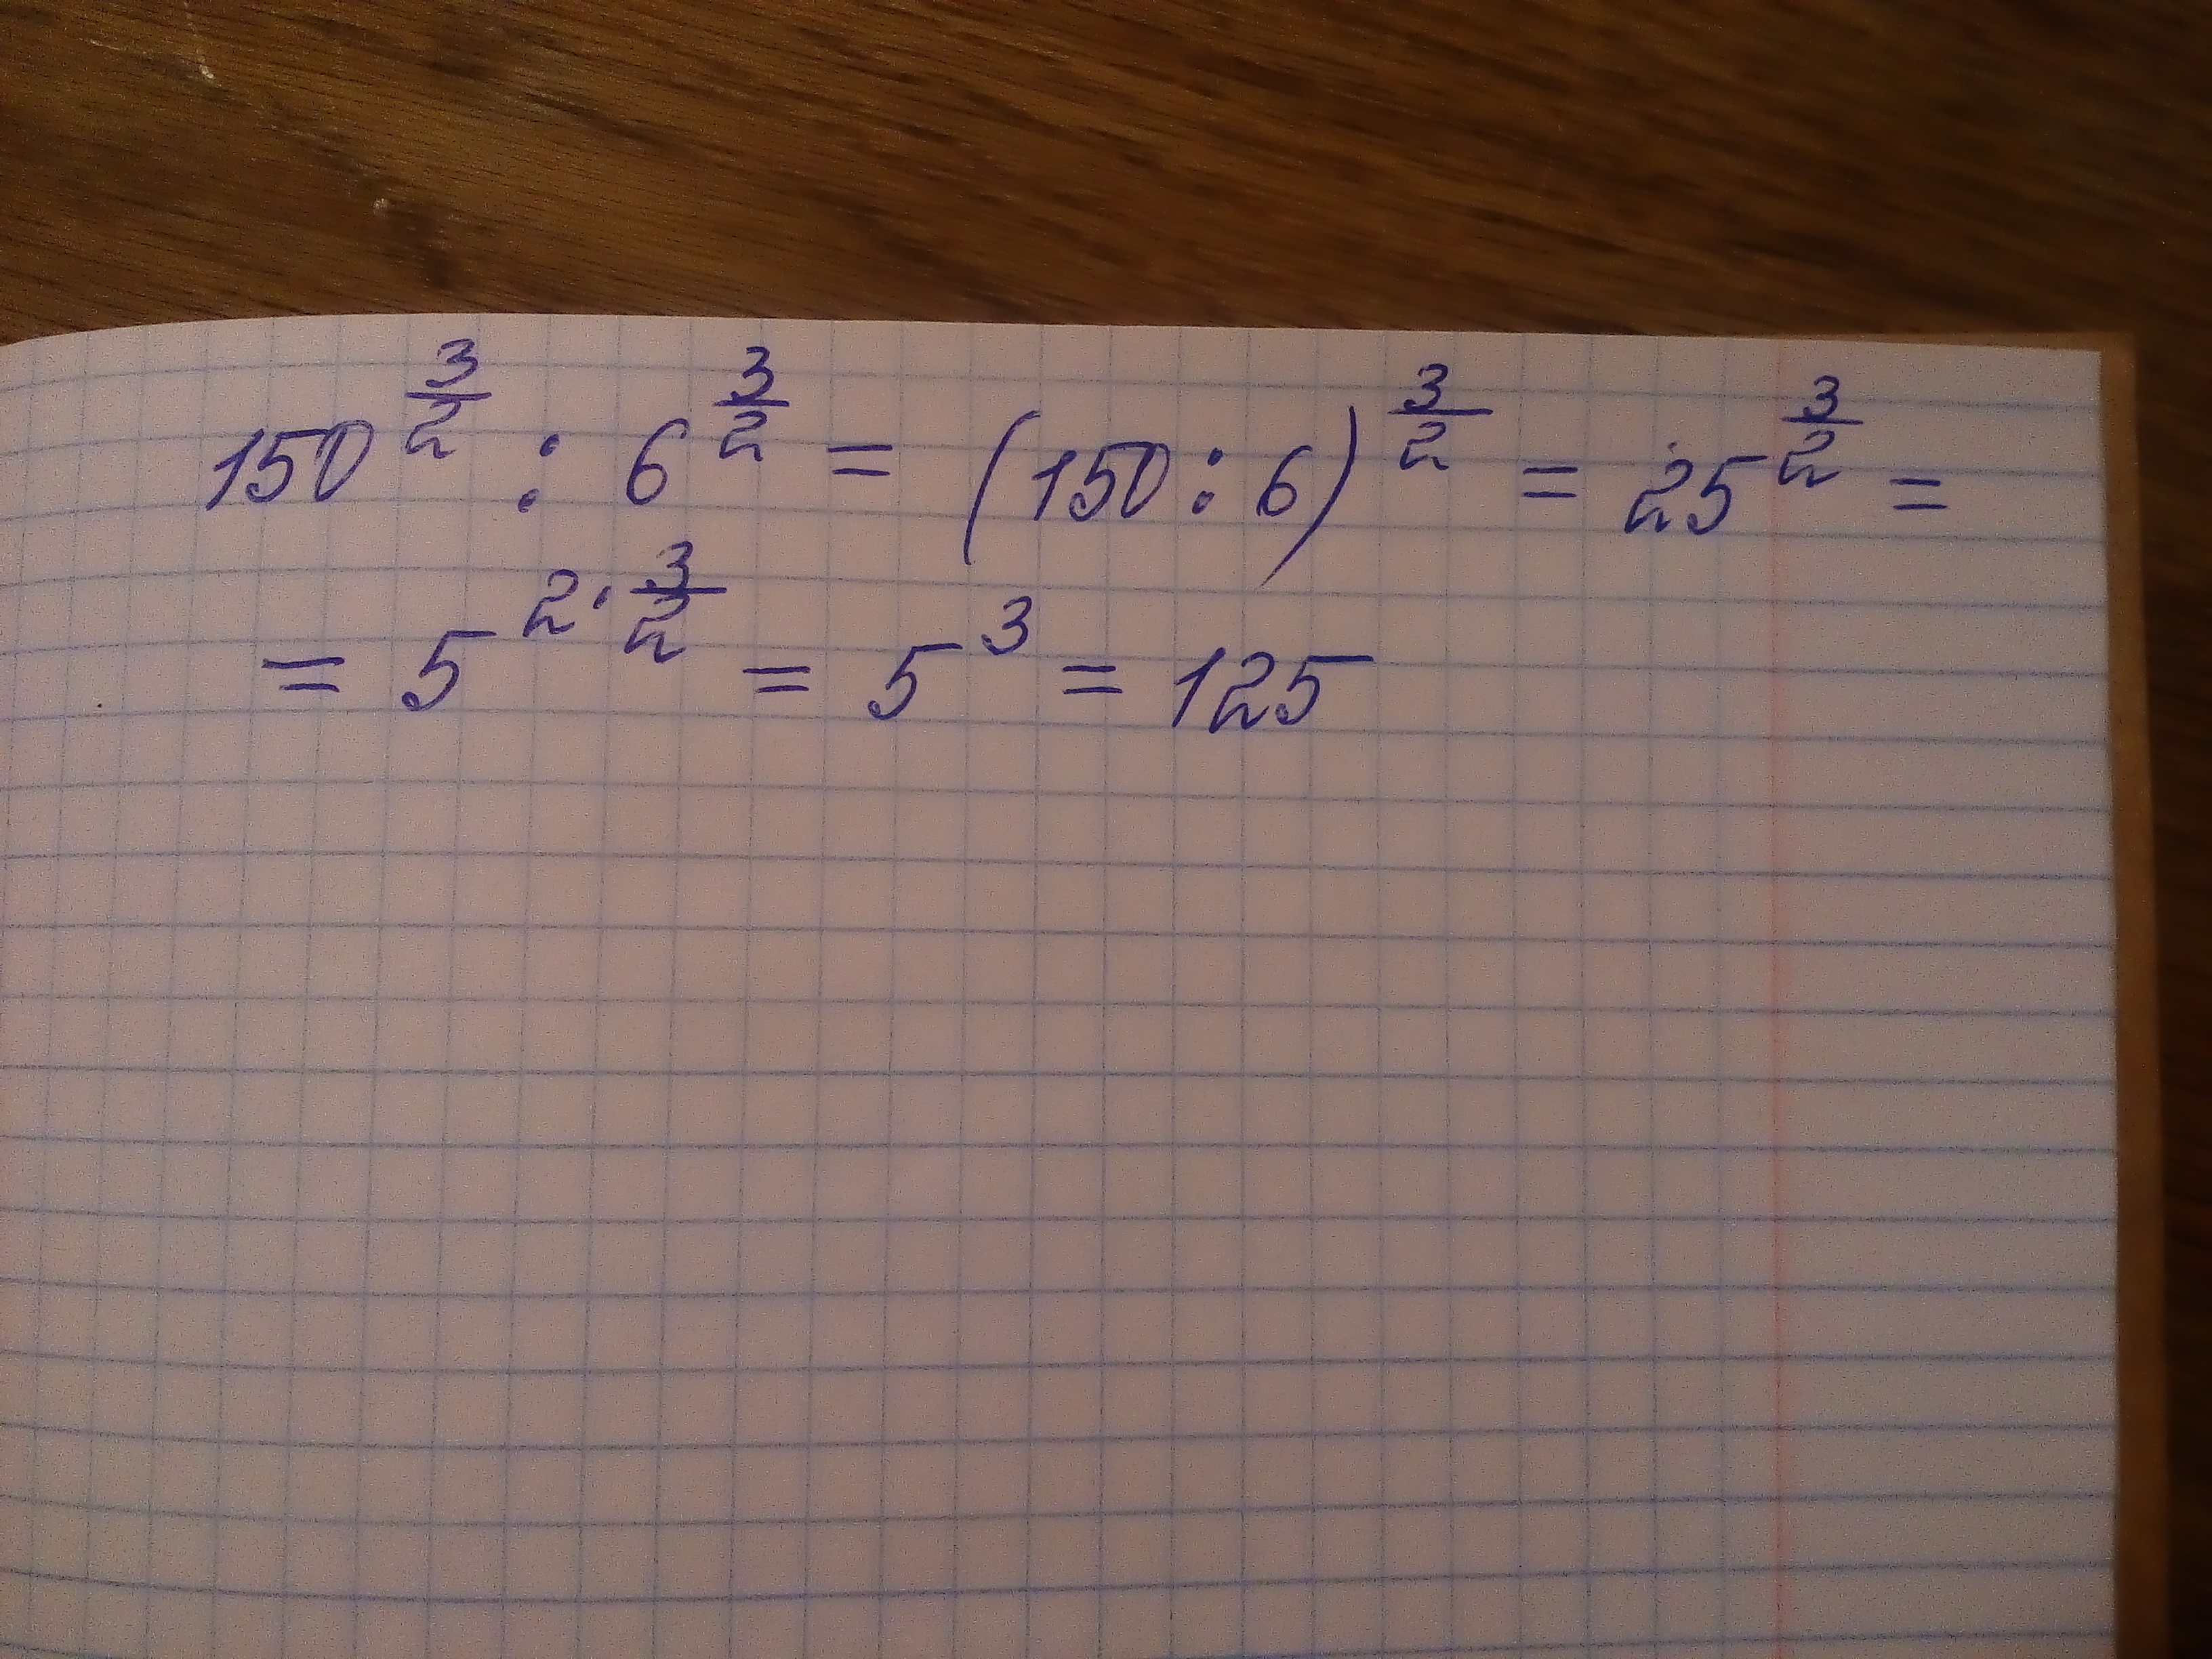 150^{3/2} : 6^{3/2} = (150 : 6)^{3/2} = 25^{3/2} =
= 5^{2·3/2} = 5^3 = 125